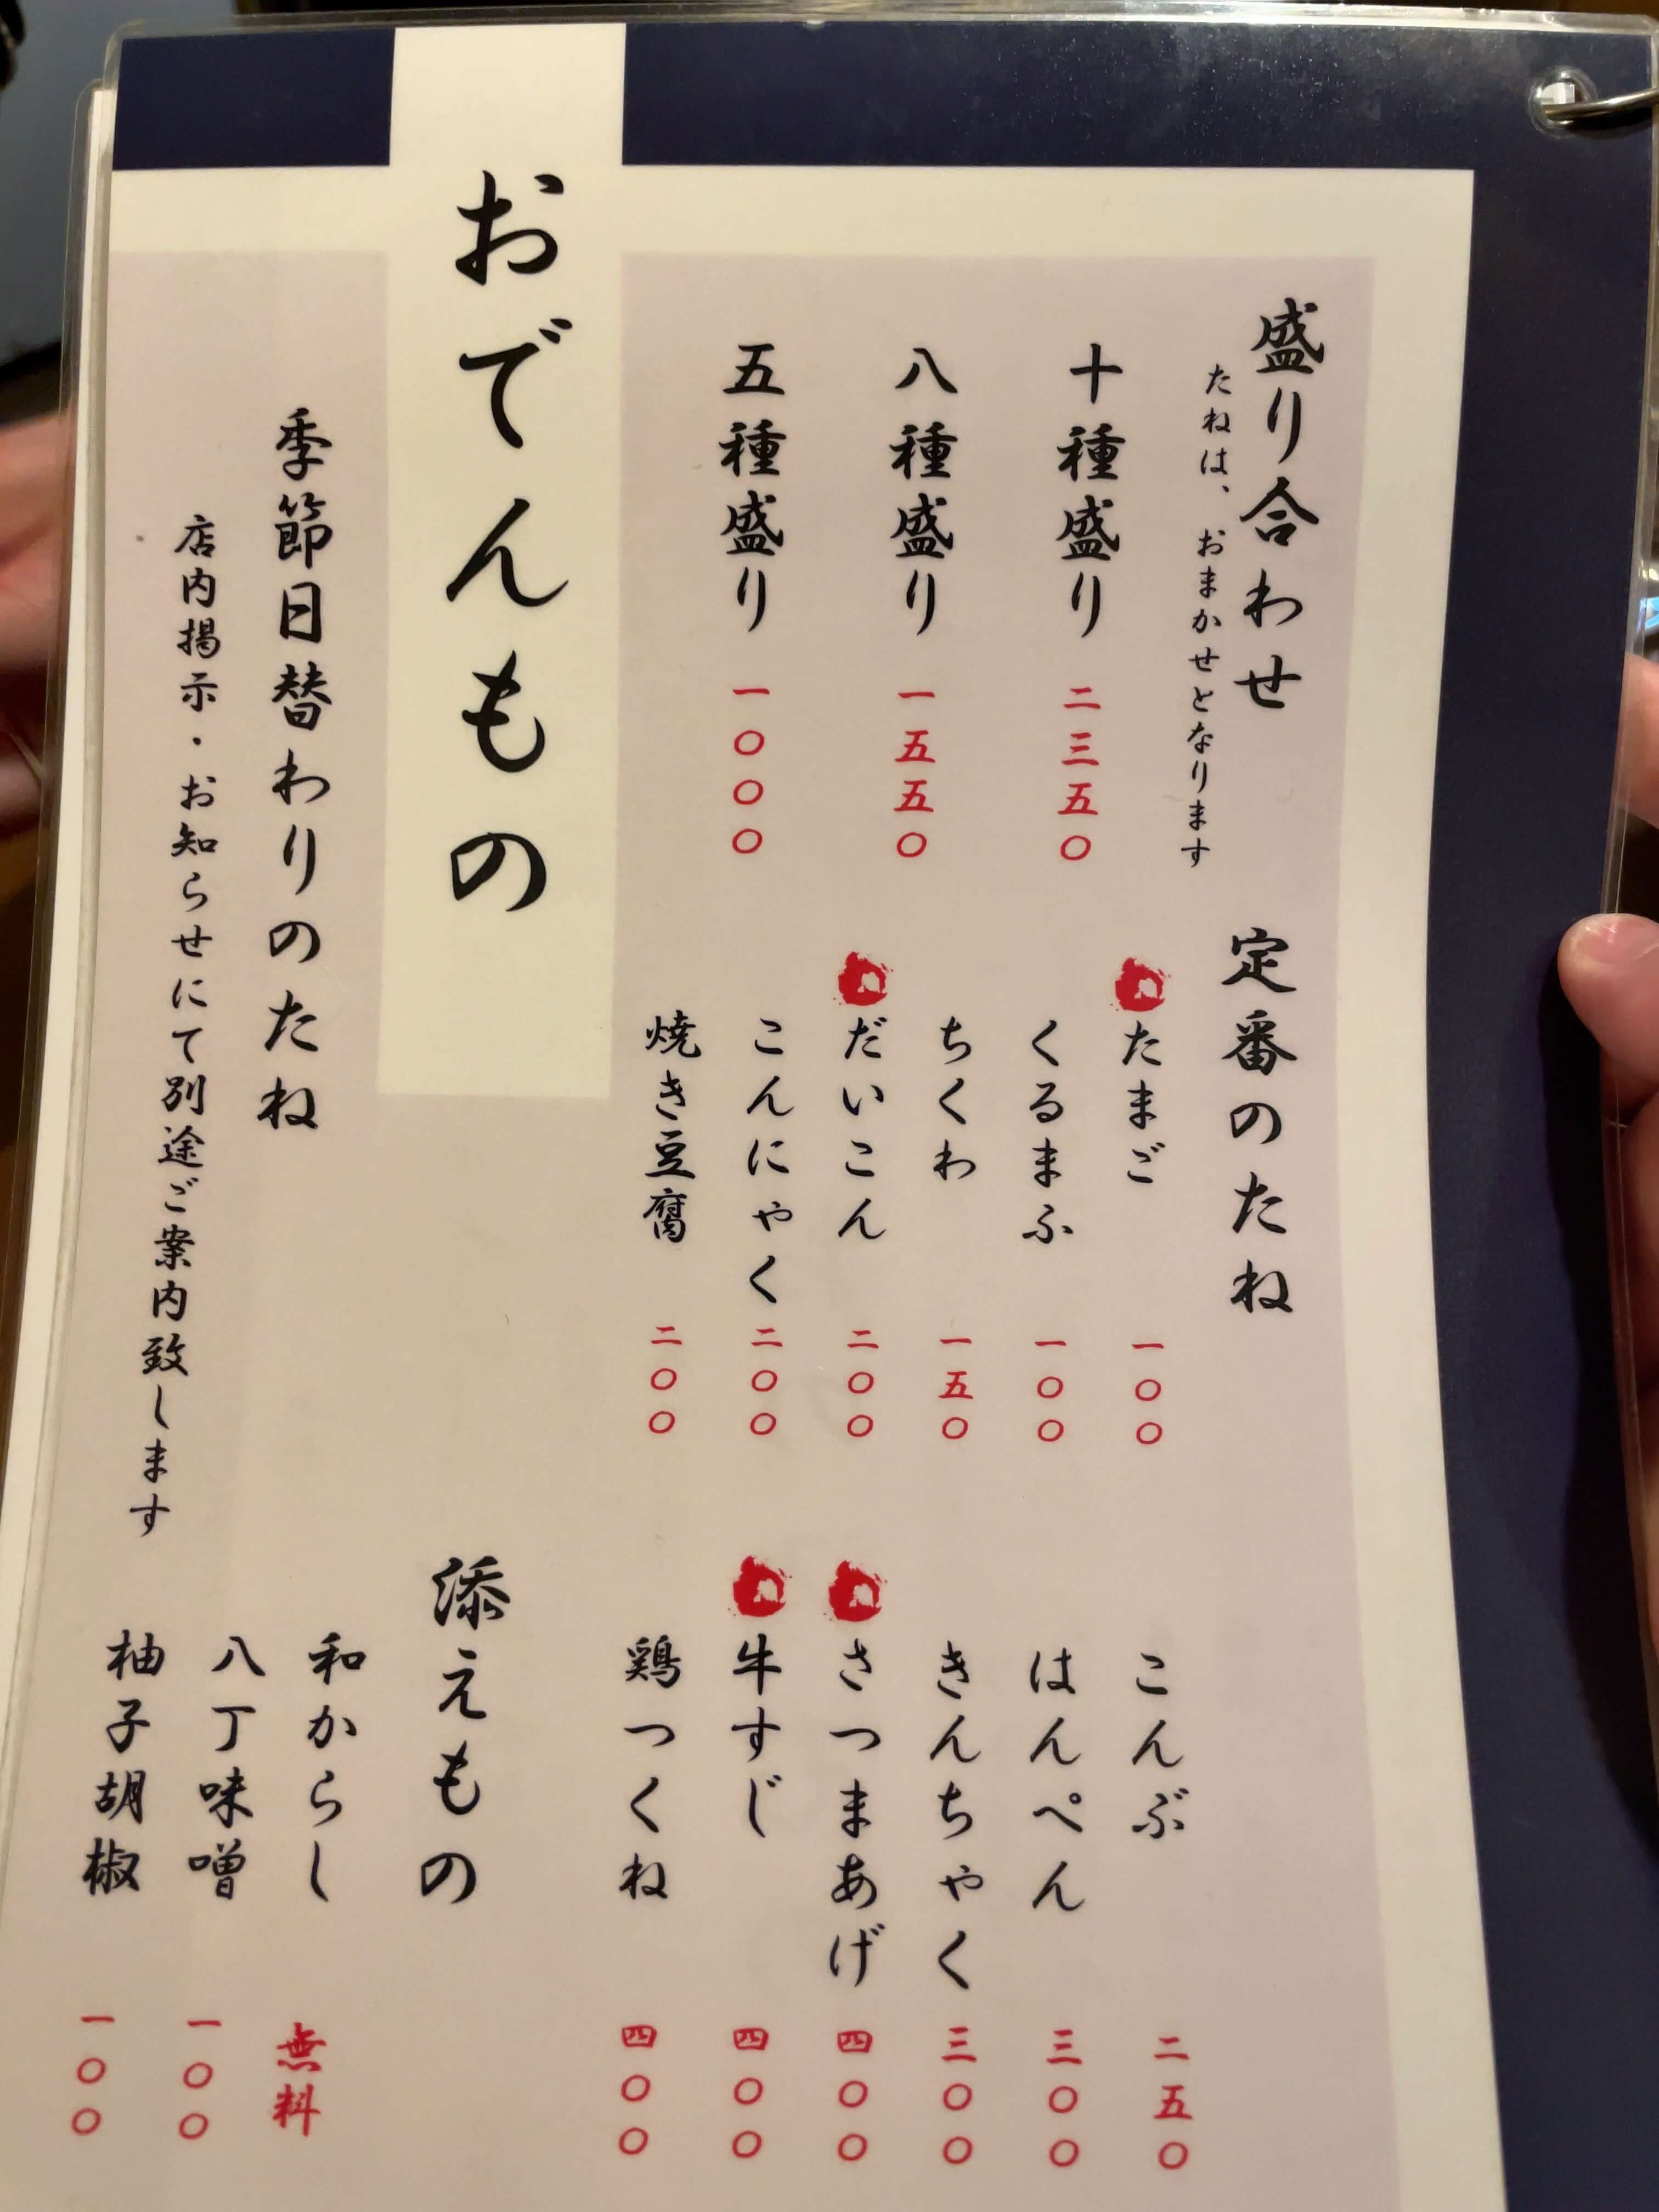 盛り合わせ
たねは、おまかせとなります
十種盛り 二三五〇
八種盛り 一五五〇
五種盛り 一〇〇〇
定番のたね
たまご 一〇〇
くるまふ 一〇〇
ちくわ 一五〇
だいこん 二〇〇
こんにゃく 二〇〇
焼き豆腐 二〇〇
こんぶ 二五〇
はんぺん 三〇〇
きんちゃく 三〇〇
さつまあげ 四〇〇
牛すじ 四〇〇
鶏つくね 四〇〇
おでんもの
季節日替わりのたね
店内掲示・お知らせにて別途ご案内致します
添えもの
和からし 無料
八丁味噌 一〇〇
柚子胡椒 一〇〇